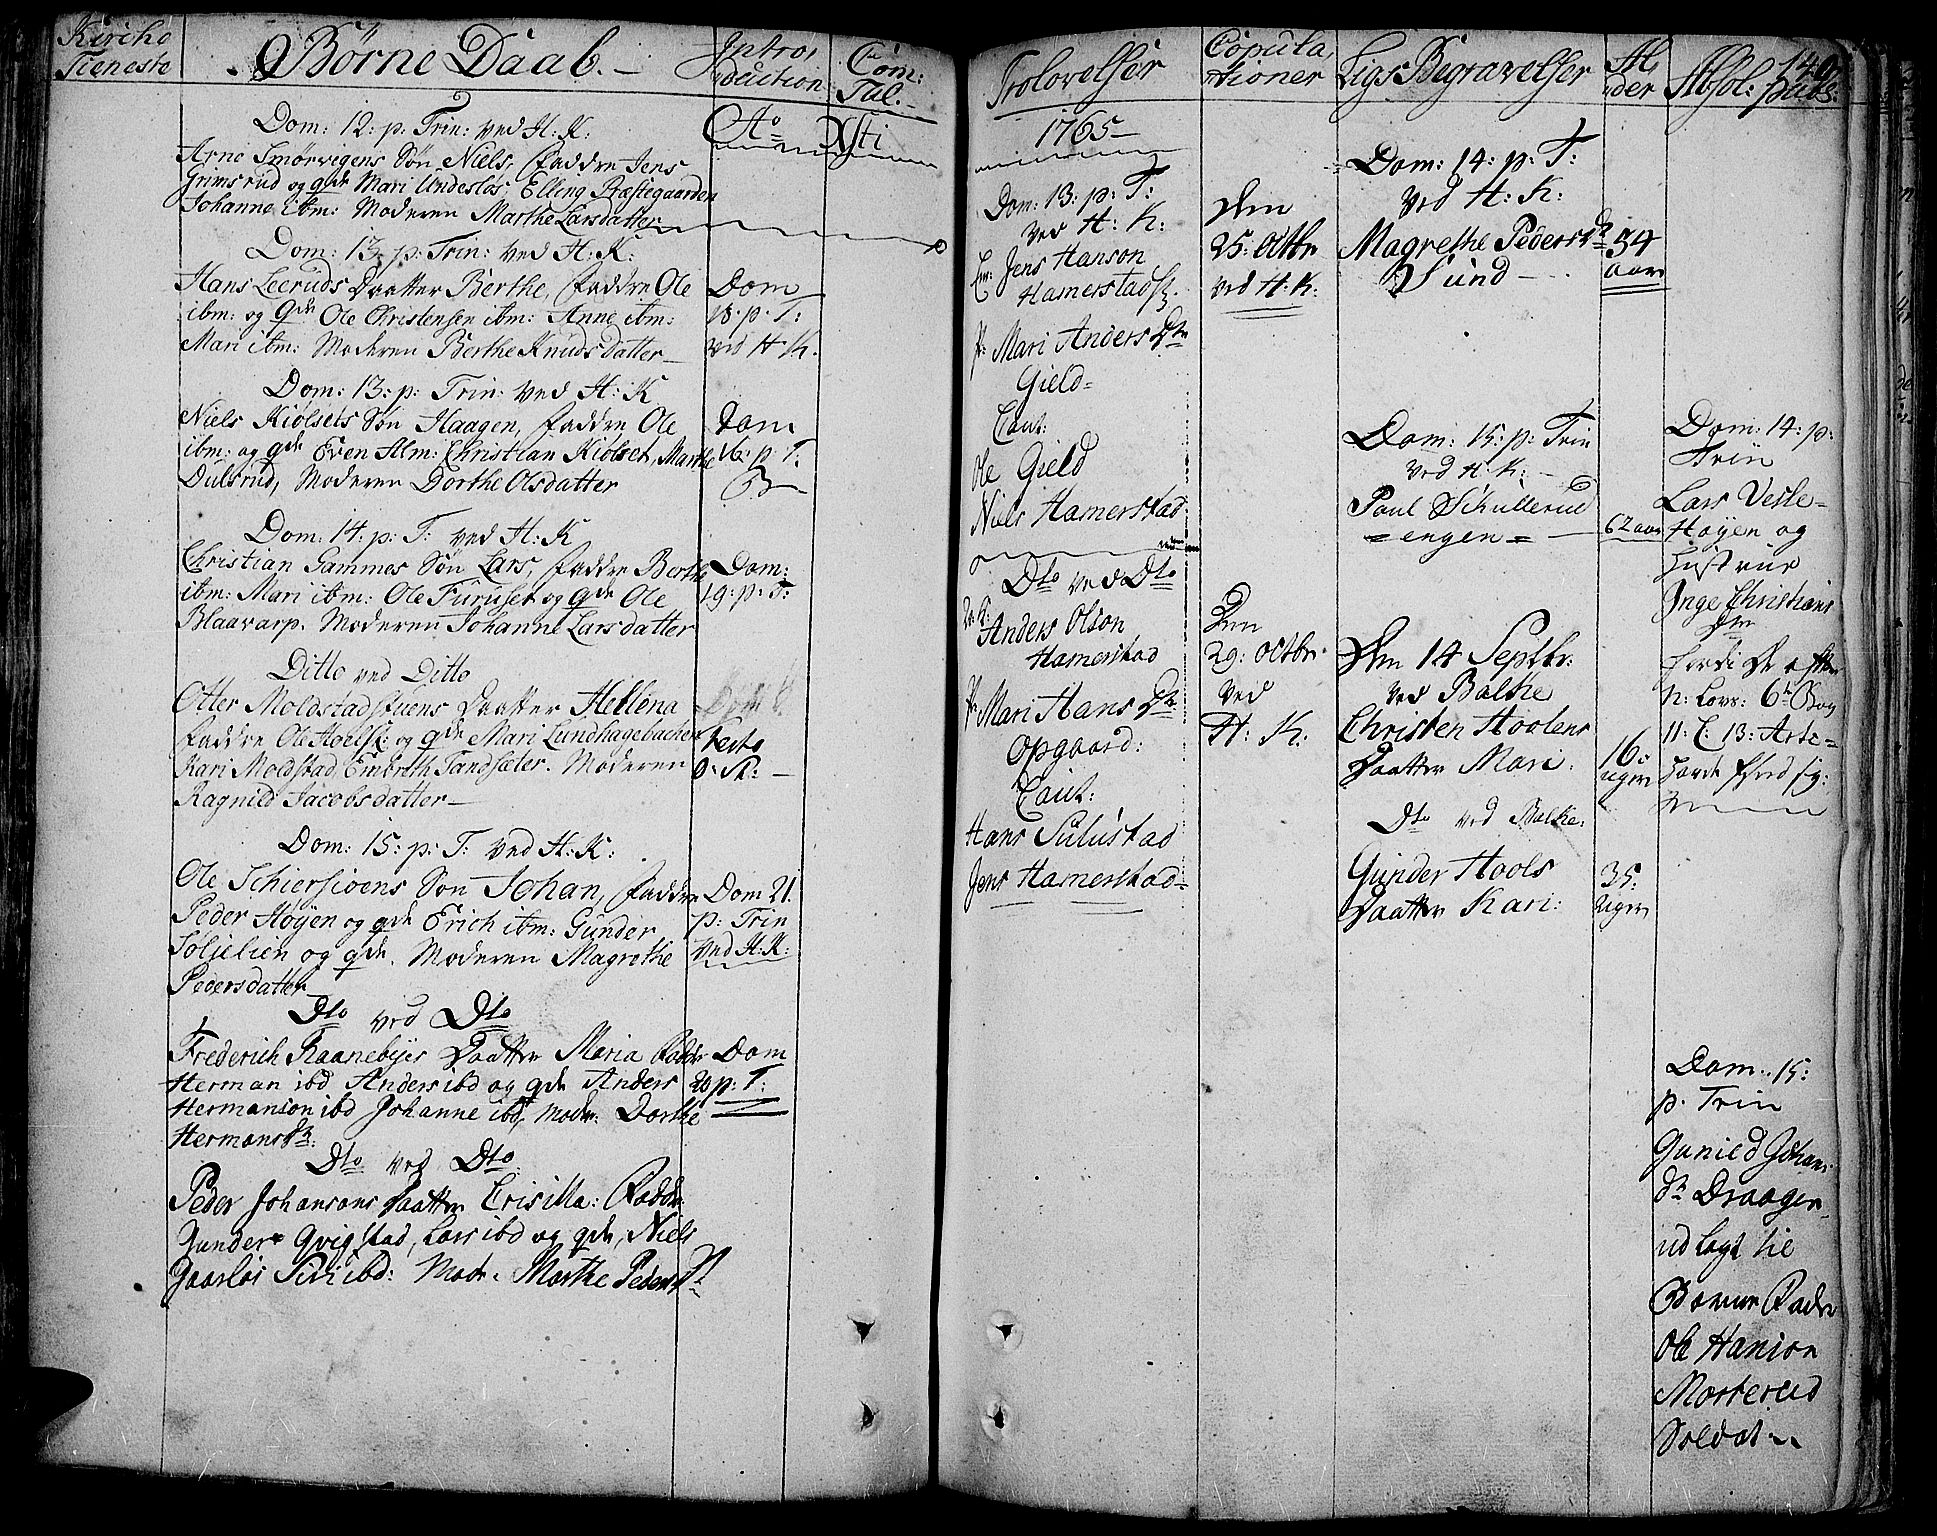 Kirche
Tieneste
Børne Daab.
Intro,
duction
Com:
Tal.
Ao Xsti
Dom: 12: p: Trin: ved H: K:
Arne Smörvigens Søn Niels, faddre Jens
Grimsrud og qde Mari Undeslos, Elling Præstegaarden
Johanne ibm: Moderen Marthe Larsdatter
Dom: 13: p: Trin: ved H: K:
Hans Leeruds Daatter Berthe, faddre Ole
ibm: og qde Ole Christensen ibm: Anne ibm:
Mari ibm: Moderen Berthe Knudsdatter
Dom
18. p. T:
ved H K.
Dom: 13: p: Trin: ved H: K
Niels Kiølsets Søn Haagen, faddre Ole
ibm: og qde Even Alm: Christian Kiölset, Marthe
Dulsrud, Moderen Dorthe Olsdatter
Dom
16: p. T:
Dom: 14: p: T: ved H: K
Christian Gammes Søn Lars, faddre Berthe
ibm: Mari ibm: Ole Furuset og qde Ole
Blaavarp. Moderen Johanne Larsdatter
Dom:
19: p: T:
Ditto ved Ditto
Otter Moldstadstuens Daatter Hellena
faddre Ole og qde Mari Lundhagebachen
Kari Moldstad, Embreth Tandsæter. Moderen
Ragnild Jacobsdatter
Festo
O: S:
Dom: 15: p: T: ved H: K:
Ole Schiersioens Søn Johan, faddre
Peder Høyen og qde Erich ibm: Gunder
Solielien og qde. Moderen Magrethe
Pedersdatter
Dom 21.
p: Trin
ved H: K:
Dto ved Dto
Frederich Raanebyes Daatter Maria Faddr
Herman ibd Anders ibd og qde Anders
Hermanson ibd Johanne ibd, Modr: Dorthe
Hermansdr:
Dom
20 p: T:
Dto ved Dto
Peder Johansons Daatter Crisilla: Faddr:
Gunder Qvigstad, Lars ibd og qde, Niels
Gaarlos Siri ibd: Modr. Marthe Pedersdr
Trolovelser
1765
Dom: 13: p: T:
ved H: K:
Jens Hanson
Hamerstad
P: Mari Anders Dtr
Gield
Caut:
Ole Gield
Niels Hamerstad
Dto ved Dto
Anders Olson
Hamerstad
P: Mari Hans Dtr
Opgaard:
Caut:
Hans Sulustad
Jens Hamerstad
Copula,
tioner
Den
25: Octbr
ved H: K:
Den
29: Octbr.
ved
H: K:
Ligs Begravelser
Al,
der
Dom: 14: p: T:
ved H: K:
Magrethe Pedersdr
Sund
54
aar
Dom: 15: p: Trin
ved H: K:
Paul Schullerud
engen
62 aar
Den 14 Septbr:
ved Balke
Christen Hoolens
Daatter Mari:
16
uger
Dto ved Balke:
Gunder Hools
Daatter Kari:
35:
Uger
Absol: publ:
149
Dom: 14: p:
Trin
Lars Vesle-
Høyen og
Hustrue
Inge Christians
dtr
fordi De efter
N: Lovs: 6te Bog
11: C: 13: Art:
Dom: 15:
p. Trin
Gunild Johans
dr Draager
udlagt til
Barne Fader
Ole Hanson
Morterud
Soldat